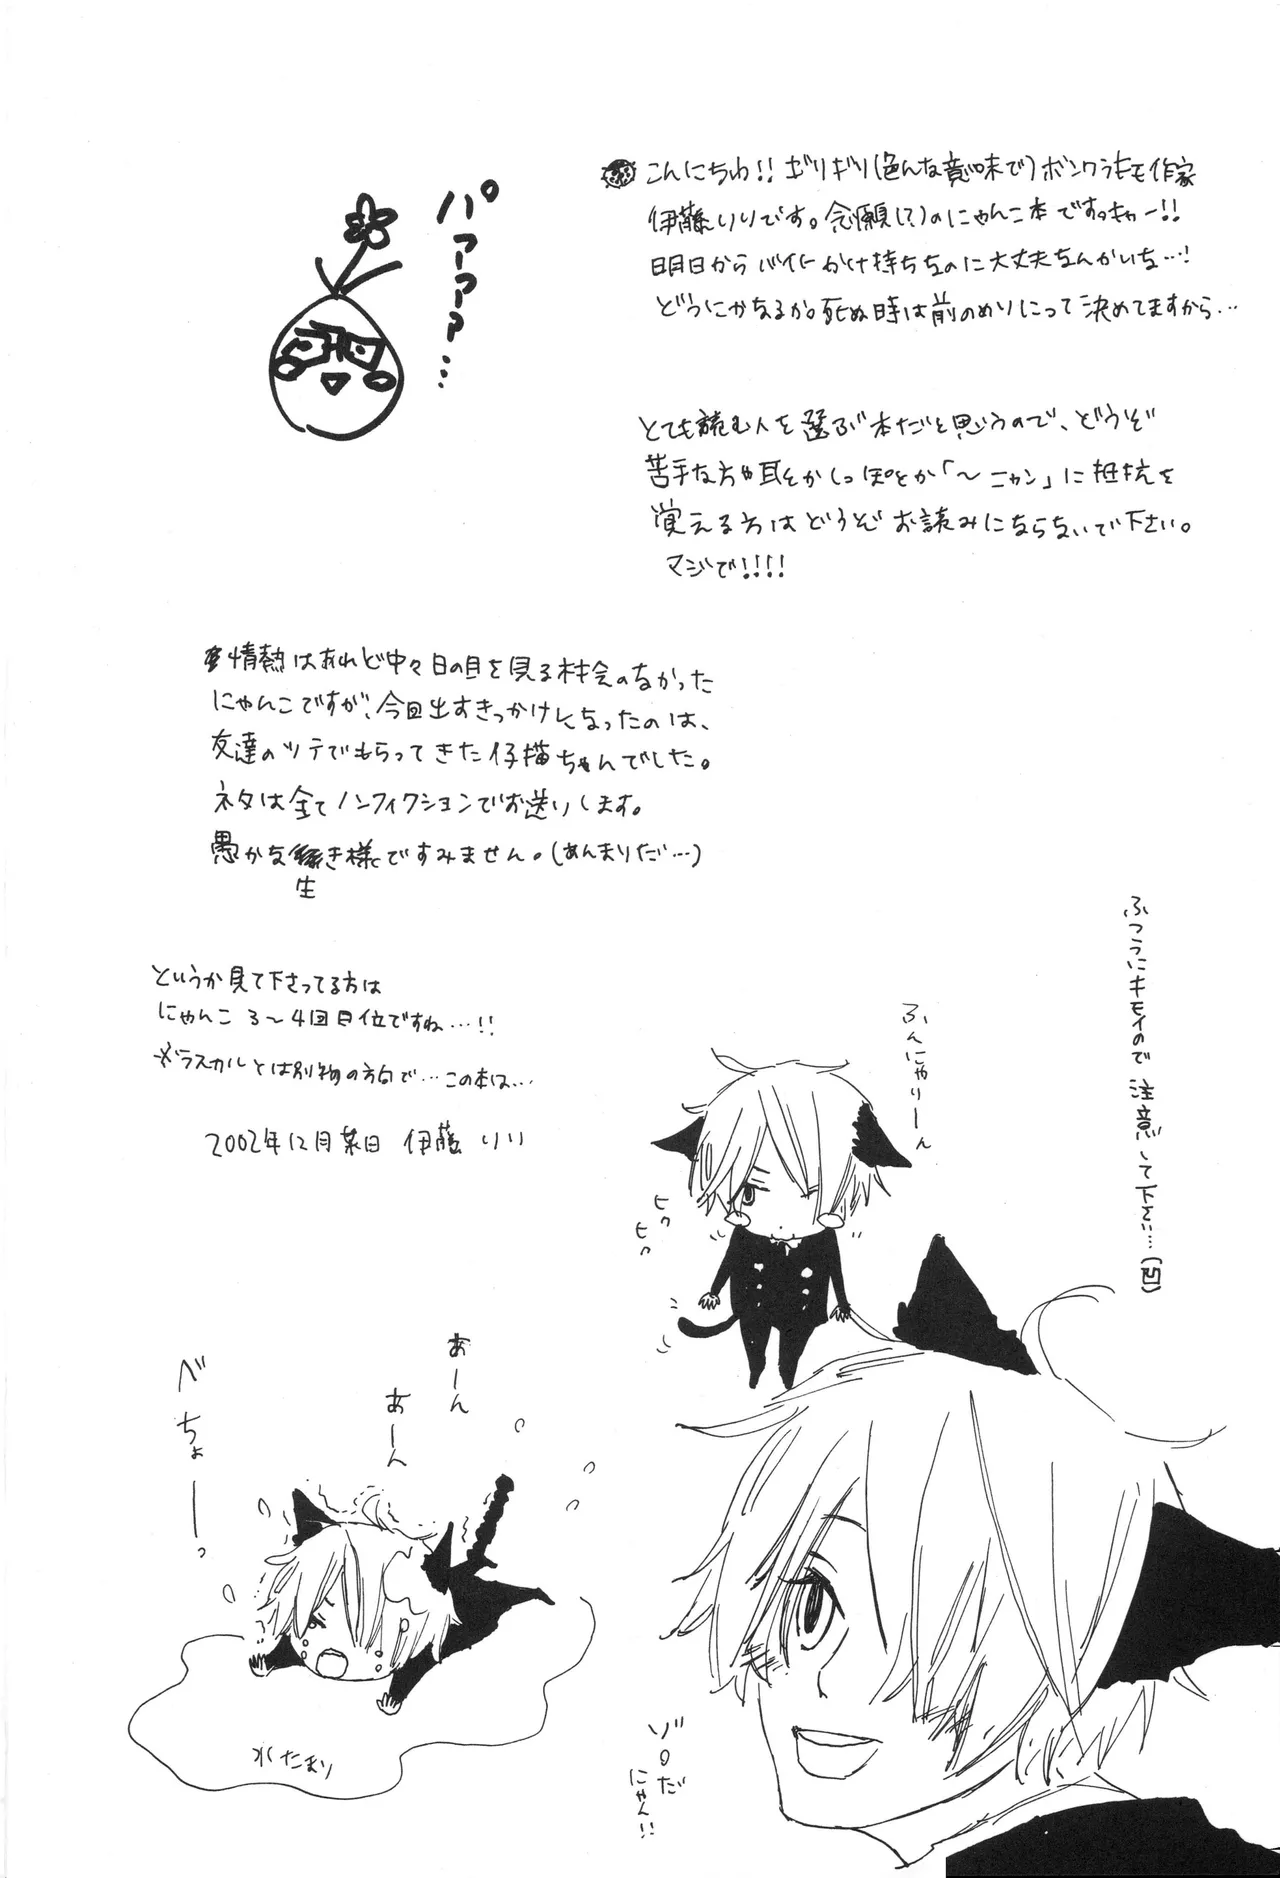 こんにちわ!! ギリギリ(色んな意味で)ボンクラホモ作家
伊藤りりです。念願(?)のにゃんこ本ですっキャー!!
明日からバイトかけ持ちなのに大丈夫なんかいな…!
どうにかなるか。死ぬ時は前のめりにって決めてますから…
パァーァァァ…
とても読む人を選ぶ本だと思うので、どうぞ
苦手な方や耳とかしっぽとか「〜ニャン」に抵抗を
覚える方はどうぞお読みにならないで下さい。
マジで!!!!
情熱はあれど中々日の目を見る機会のなかった
にゃんこですが、今回出すきっかけとなったのは、
友達のツテでもらってきた仔猫ちゃんでした。
ネタは全てノンフィクションでお送りします。
愚かな生き様ですみません。(あんまりだ…)
というか見て下さってる方は
にゃんこ 3〜4回目位ですね…!!
※ラスカルとは別物の方向で…この本は…
2002年12月某日 伊藤 りり
ふつうにキモイので注意して下さい…(凹)
ふんにゃりーん
ヒク
ヒク
あーん
あーん
べちょーっ
水たまり
ゾロだ
にゃん!!